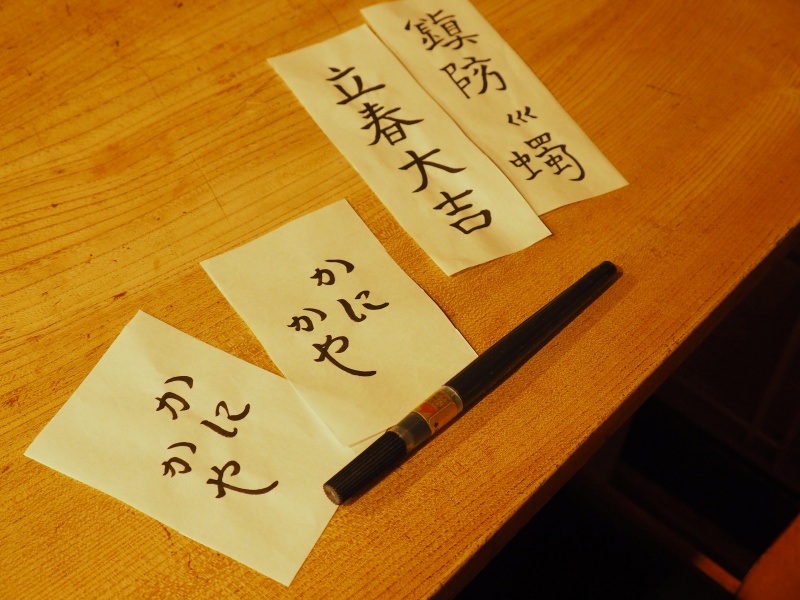 鎭防巛蠋
立春大吉
かに
かや
かに
かや